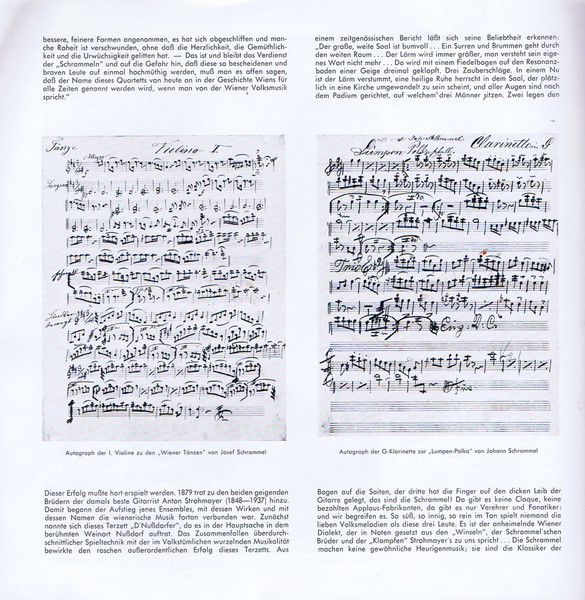 bessere, feinere Formen angenommen, es hat sich abgeschliffen und man-
che Roheit ist verschwunden, ohne daß die Herzlichkeit, die Gemüthlich-
keit und die Urwüchsigkeit gelitten hat. — Das ist und bleibt das Verdienst
der „Schrammeln" und auf die Gefahr hin, daß diese so bescheidenen und
braven Leute auf einmal hochmüthig werden, muß man es offen sagen,
daß der Name dieses Quartetts von heute an in der Geschichte Wiens für
alle Zeiten genannt werden wird, wenn man von der Wiener Volksmusik
spricht."
einem zeitgenössischen Bericht läßt sich seine Beliebtheit erkennen:
„Der große, weite Saal ist bumvoll . . . Ein Surren und Brummen geht durch
den weiten Raum . . . Der Lärm wird immer größer, man versteht sein eige-
nes Wort nicht mehr . . . Da wird mit einem Fiedelbogen auf den Resonanz-
boden einer Geige dreimal geklopft. Drei Zauberschläge. In einem Nu
ist der Lärm verstummt, eine heilige Ruhe herrscht in dem Saal, der plötz-
lich in eine Kirche umgewandelt zu sein scheint, und aller Augen sind nach
dem Podium gerichtet, auf welchem drei Männer sitzen. Zwei legen den
Tänze Violino I
Clarinette in G
Lumpen Polka
Eing. D.C.
Autograph der I. Violine zu den „Wiener Tänzen" von Josef Schrammel
Autograph der G-Klarinette zur „Lumpen-Polka" von Johann Schrammel
Dieser Erfolg mußte hart erspielt werden. 1879 trat zu den beiden geigenden
Brüdern der damals beste Gitarrist Anton Strohmayer (1848—1937) hinzu.
Damit begann der Aufstieg jenes Ensembles, mit dessen Wirken und mit
dessen Namen die wienerische Musik fortan verbunden war. Zunächst
nannte sich dieses Terzett „D'Nußdorfer", da es in der Hauptsache in dem
berühmten Weinort Nußdorf auftrat. Das Zusammenfallen überdurch-
schnittlicher Spieltechnik mit der im Volkstümlichen wurzelnden Musikalität
bewirkte den raschen außerordentlichen Erfolg dieses Terzetts. Aus
Bogen auf die Saiten, der dritte hat die Finger auf den dicken Leib der
Gitarre gelegt, das sind die Schrammel! Da gibt es keine Claque, keine
bezahlten Applaus-Fabrikanten, da gibt es nur Verehrer und Fanatiker;
und wir begreifen es. So süß, so innig, so rein im Ton spielt niemand die
lieben Volksmelodien als diese drei Leute. Es ist der anheimelnde Wiener
Dialekt, der in Noten gesetzt aus den „Winseln", der Schrammel'schen
Brüder und der „Klampfen" Strohmayer's zu uns spricht . . . Die Schrammel
machen keine gewöhnliche Heurigenmusik; sie sind die Klassiker der